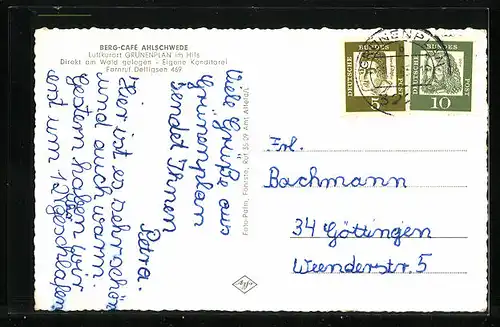 BERG-CAFÉ AHLSCHWEDE
Luftkurort GRÜNENPLAN im Hils
Direkt am Wald gelegen - Eigene Konditorei
Fernruf Delligsen 469
Viele Grüße aus
"Grünenplan"
sendet Ihnen
Petra.
Hier ist es sehr schön
und auch warm.
Gestern haben wir
erst um 12 Uhr geschlafen.
Foto-Palm, Förste, Ruf 35 29 Amt Alfeld/L.
Agfa
GRÜNENPLAN
DEUTSCHE
BUNDESPOST
5
DEUTSCHE
BUNDESPOST
10
Frl.
Bachmann
34 Göttingen
Weenderstr. 5